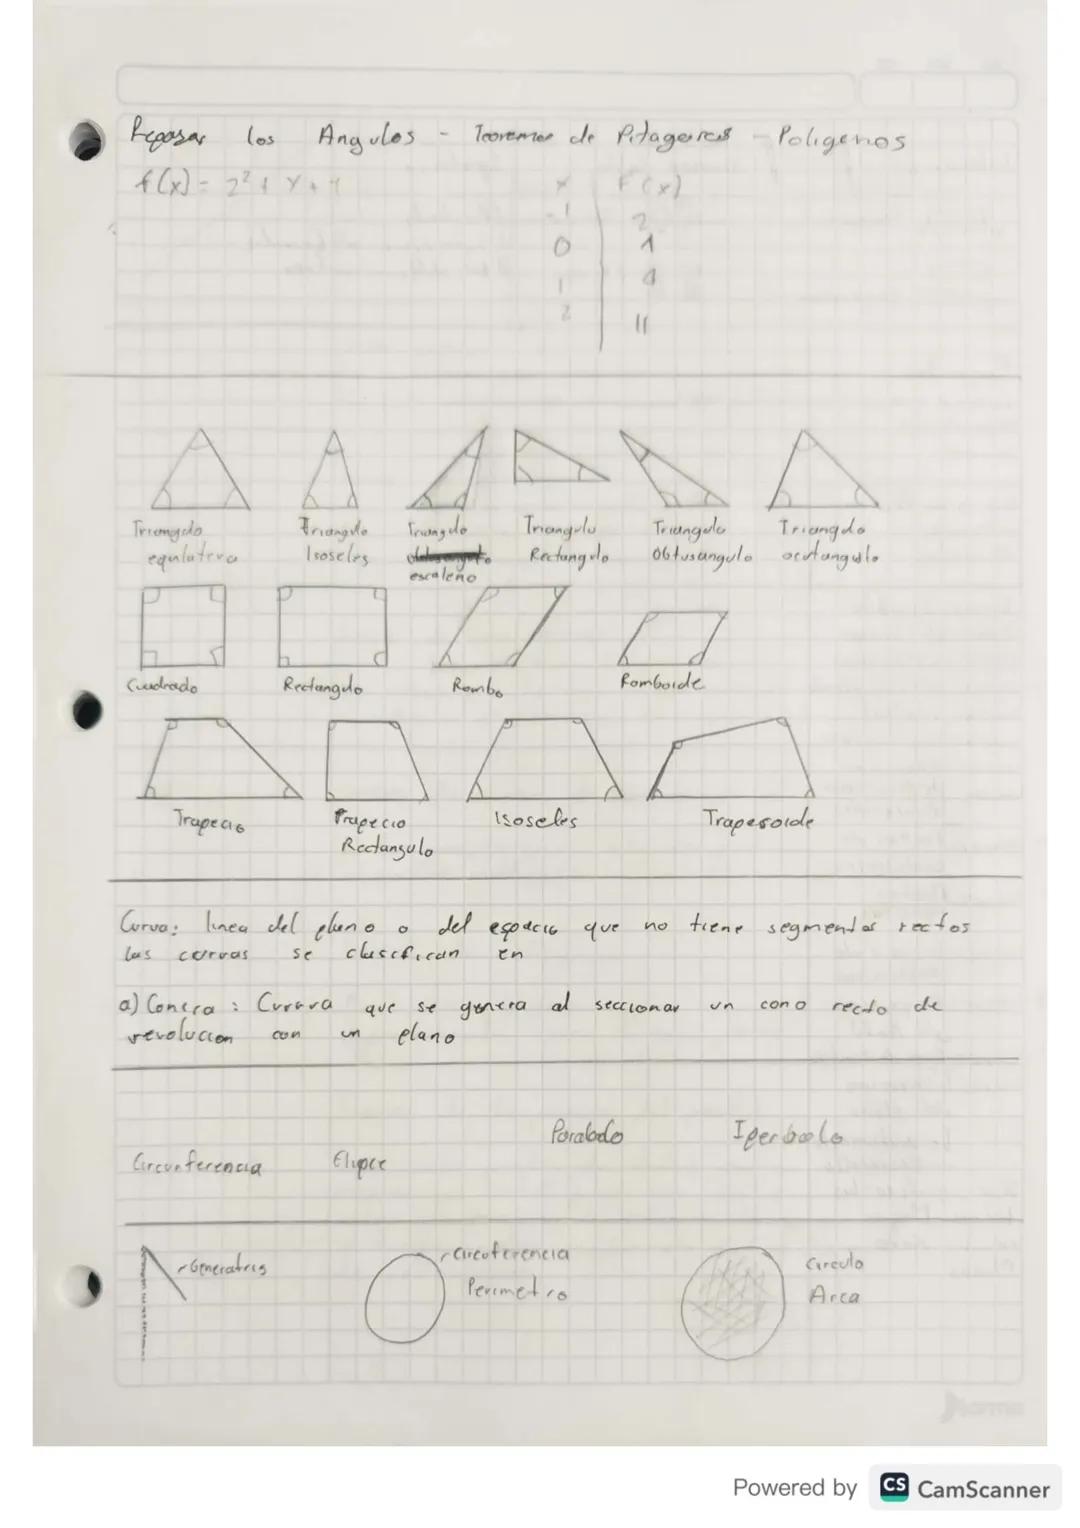 Repasar los Angulos - Teoremas de Pitagoras - Poligonos
f(x) = 2² + x + 1
x F(x)
-1 2
0 1
1 4
2 11
Triangulo equilatero
Triangulo Isoseles
Triangulo escaleno
Triangulo Rectangulo
Triangulo Obtusangulo
Triangulo acutangulo
Cuadrado
Rectangulo
Rombo
Romboide
Trapecio
Trapecio Rectangulo
Isoseles
Trapesoide
Curva: linea del plano o del espacio que no tiene segmentos rectos
las curvas se clasifican en
a) Conica : Curva que se genera al seccionar un cono recto de
revolucion con un plano
Circunferencia
Elipce
Parabola
Iperbola
Generatris
Circuferencia
Perimetro
Circulo
Area
Norma
Powered by CS CamScanner